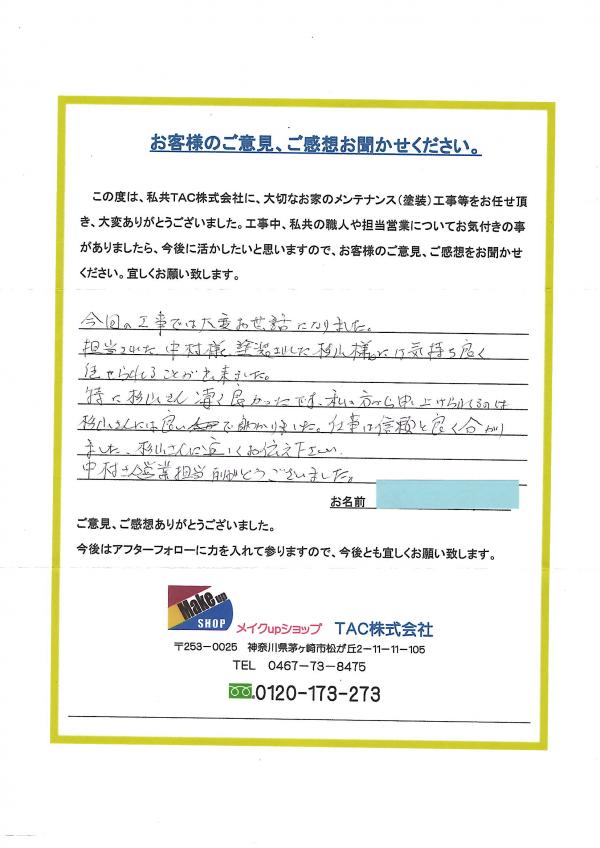 お客様のご意見、ご感想お聞かせください。
この度は、私共TAC株式会社に、大切なお家のメンテナンス(塗装)工事等をお任せ頂
き、大変ありがとうございました。工事中、私共の職人や担当営業についてお気付きの事
がありましたら、今後に活かしたいと思いますので、お客様のご意見、ご感想をお聞かせ
ください。宜しくお願い致します。
今回の工事では大変お世話になりました。
担当された中村様、塗装された杉山様には気持ち良く
任せられることが出来ました。
特に杉山さん凄く良かったです。私の方から申し上げられるのは
杉山さんには良い で助かりました。仕事は信頼と良く分かり
ました。杉山さんに宜しくお伝え下さい
中村さん営業担当有りがとうございました。
お名前
ご意見、ご感想ありがとうございました。
今後はアフターフォローに力を入れて参りますので、今後とも宜しくお願い致します。
Make up
SHOP
メイクupショップ TAC株式会社
〒253-0025 神奈川県茅ヶ崎市松が丘2-11-11-105
TEL 0467-73-8475
0120-173-273